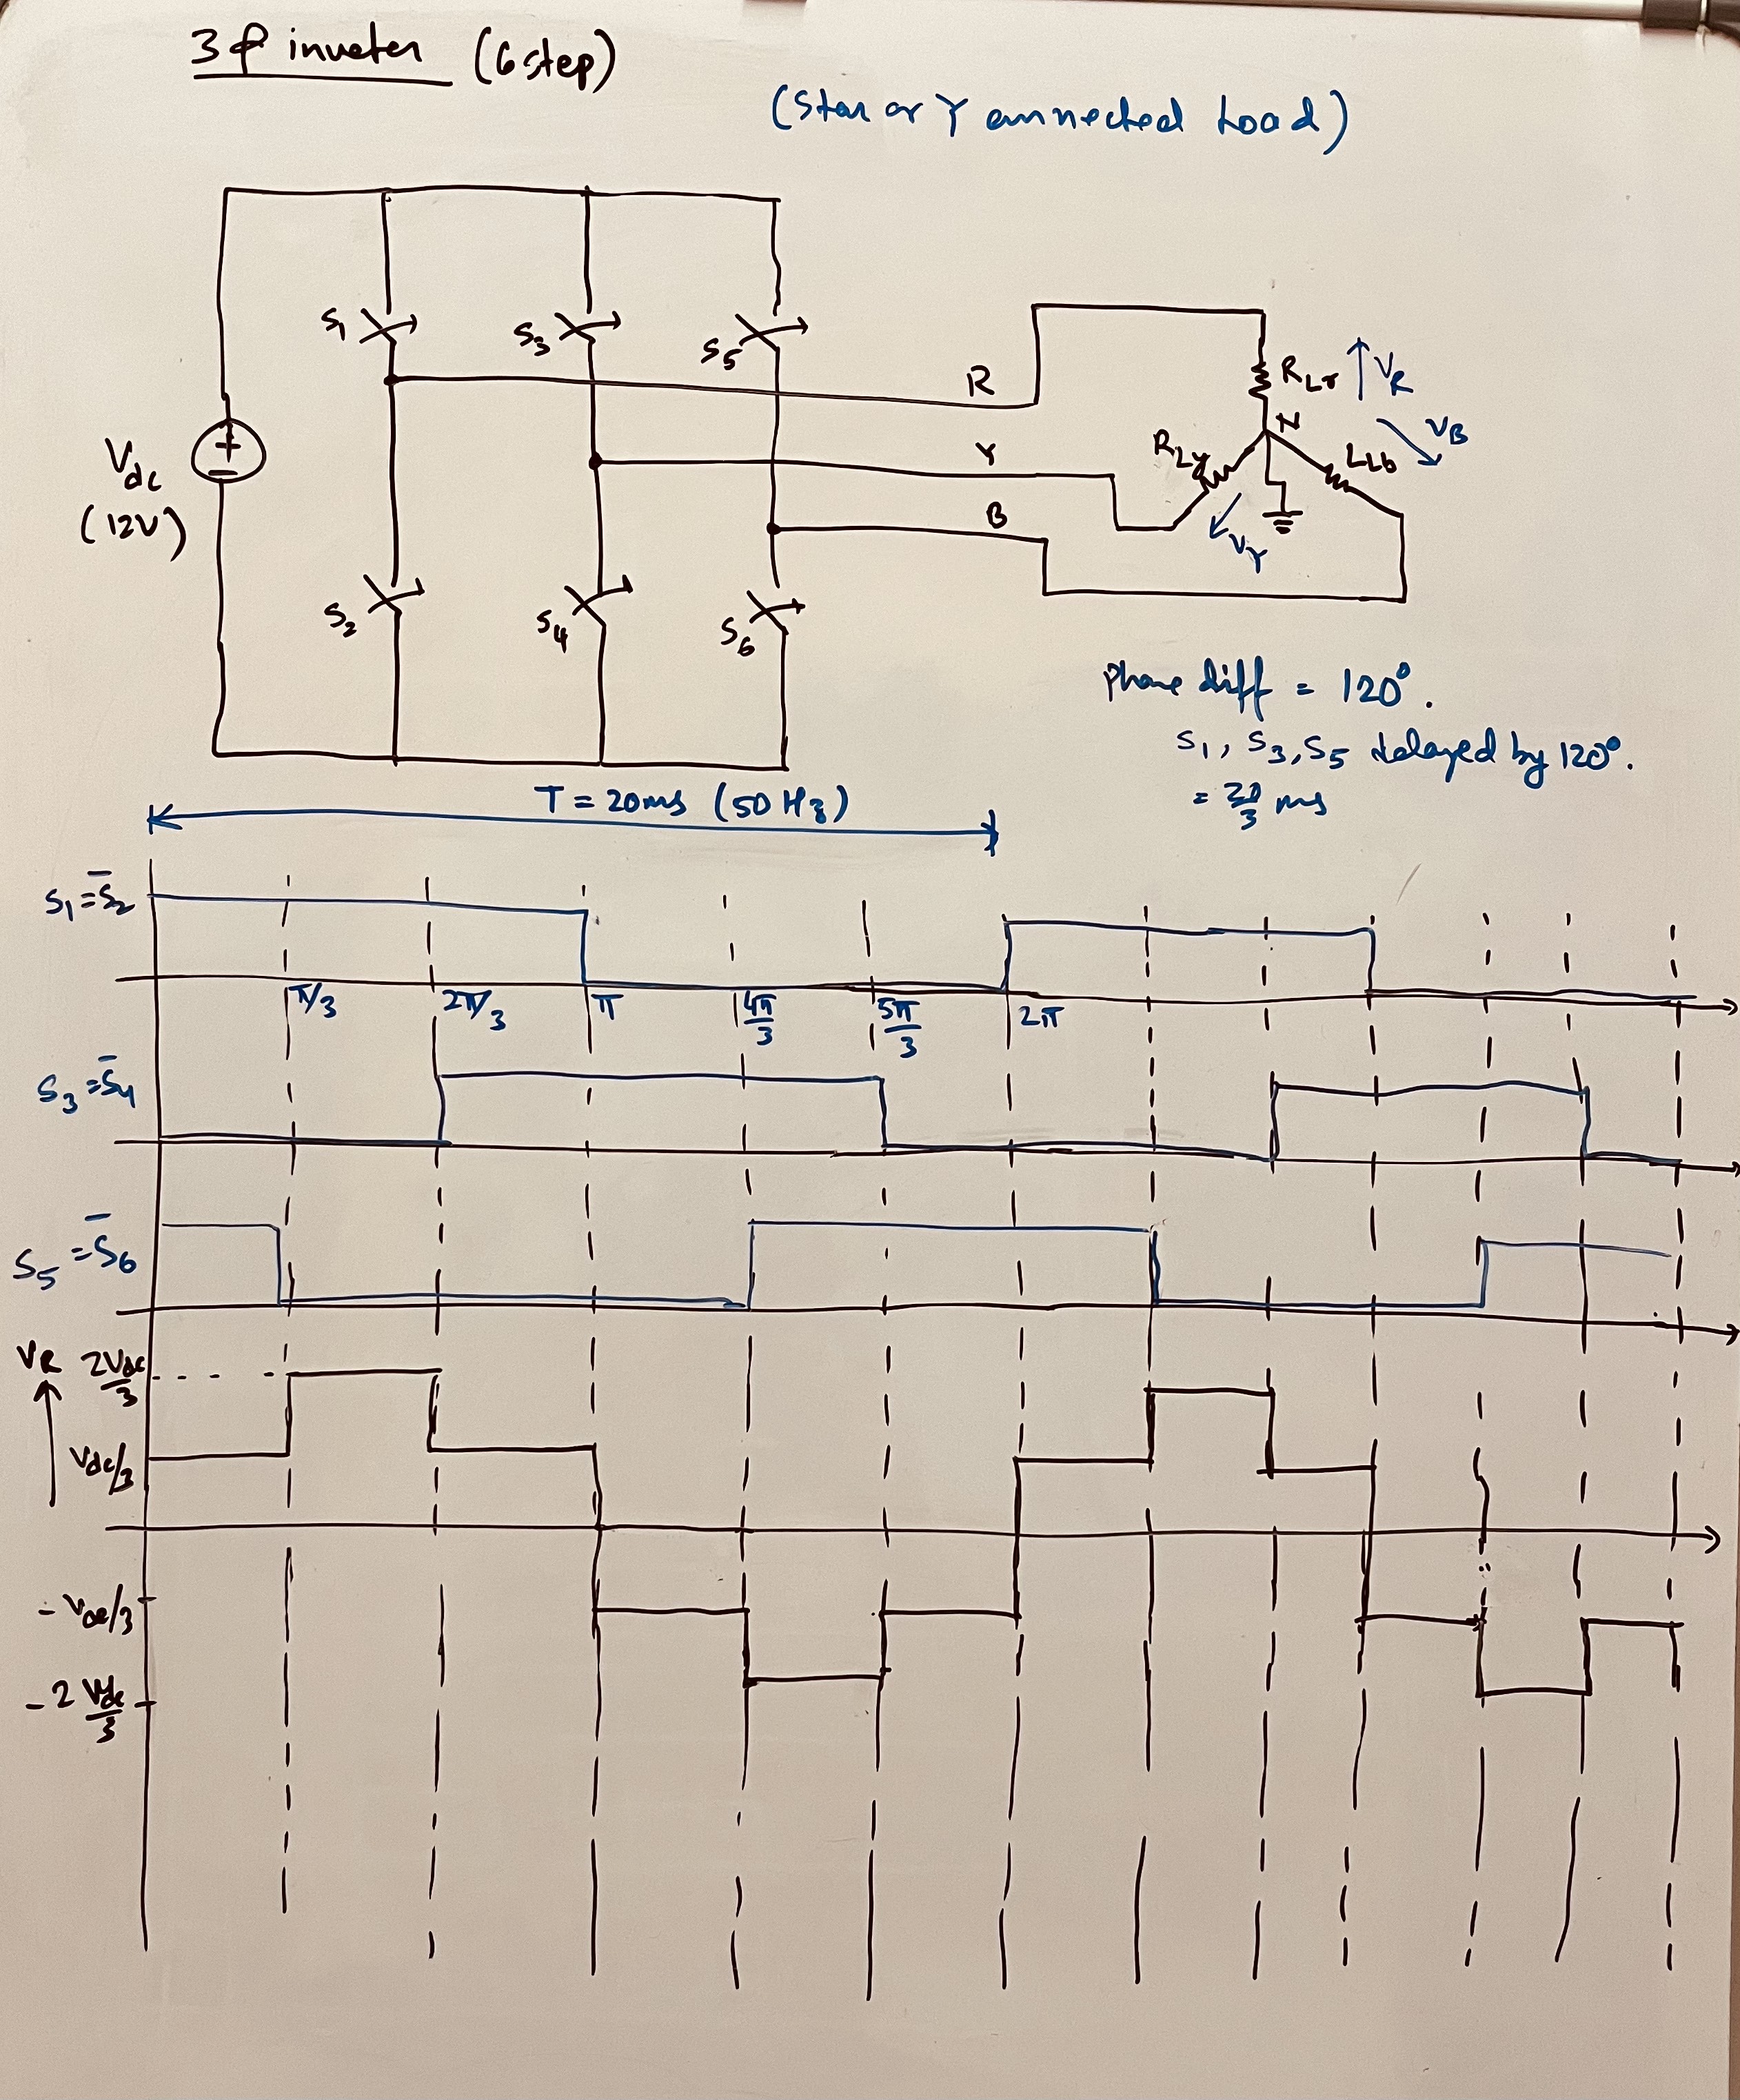 3φ inveter (6 step)
(Star or Y connected Load)
S₁
S₃
S₅
R
R_Lr
V_R
N
V_B
Y
R_Ly
L_Lb
V_dc
(12V)
+
−
B
V_Y
S₂
S₄
S₆
phase diff = 120°.
S₁, S₃, S₅ delayed by 120°.
= 20/3 ms
T = 20ms (50 Hz)
S₁ = S̄₂
π/3 2π/3 π 4π/3 5π/3 2π
S₃ = S̄₄
S₅ = S̄₆
V_R
2V_dc/3
V_dc/3
-V_dc/3
-2V_dc/3